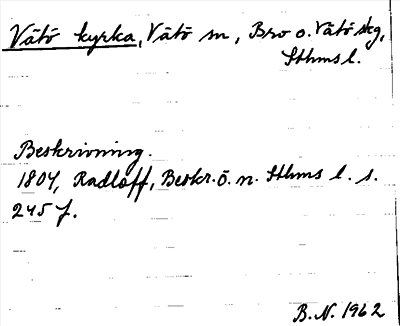 Vätö kyrka, Vätö sn, Bro o. Vätö skg,
Sthms l.
Beskrivning.
1804, Radloff, Beskr. ö. n. Sthms l. s.
245 f.
B. N. 1962